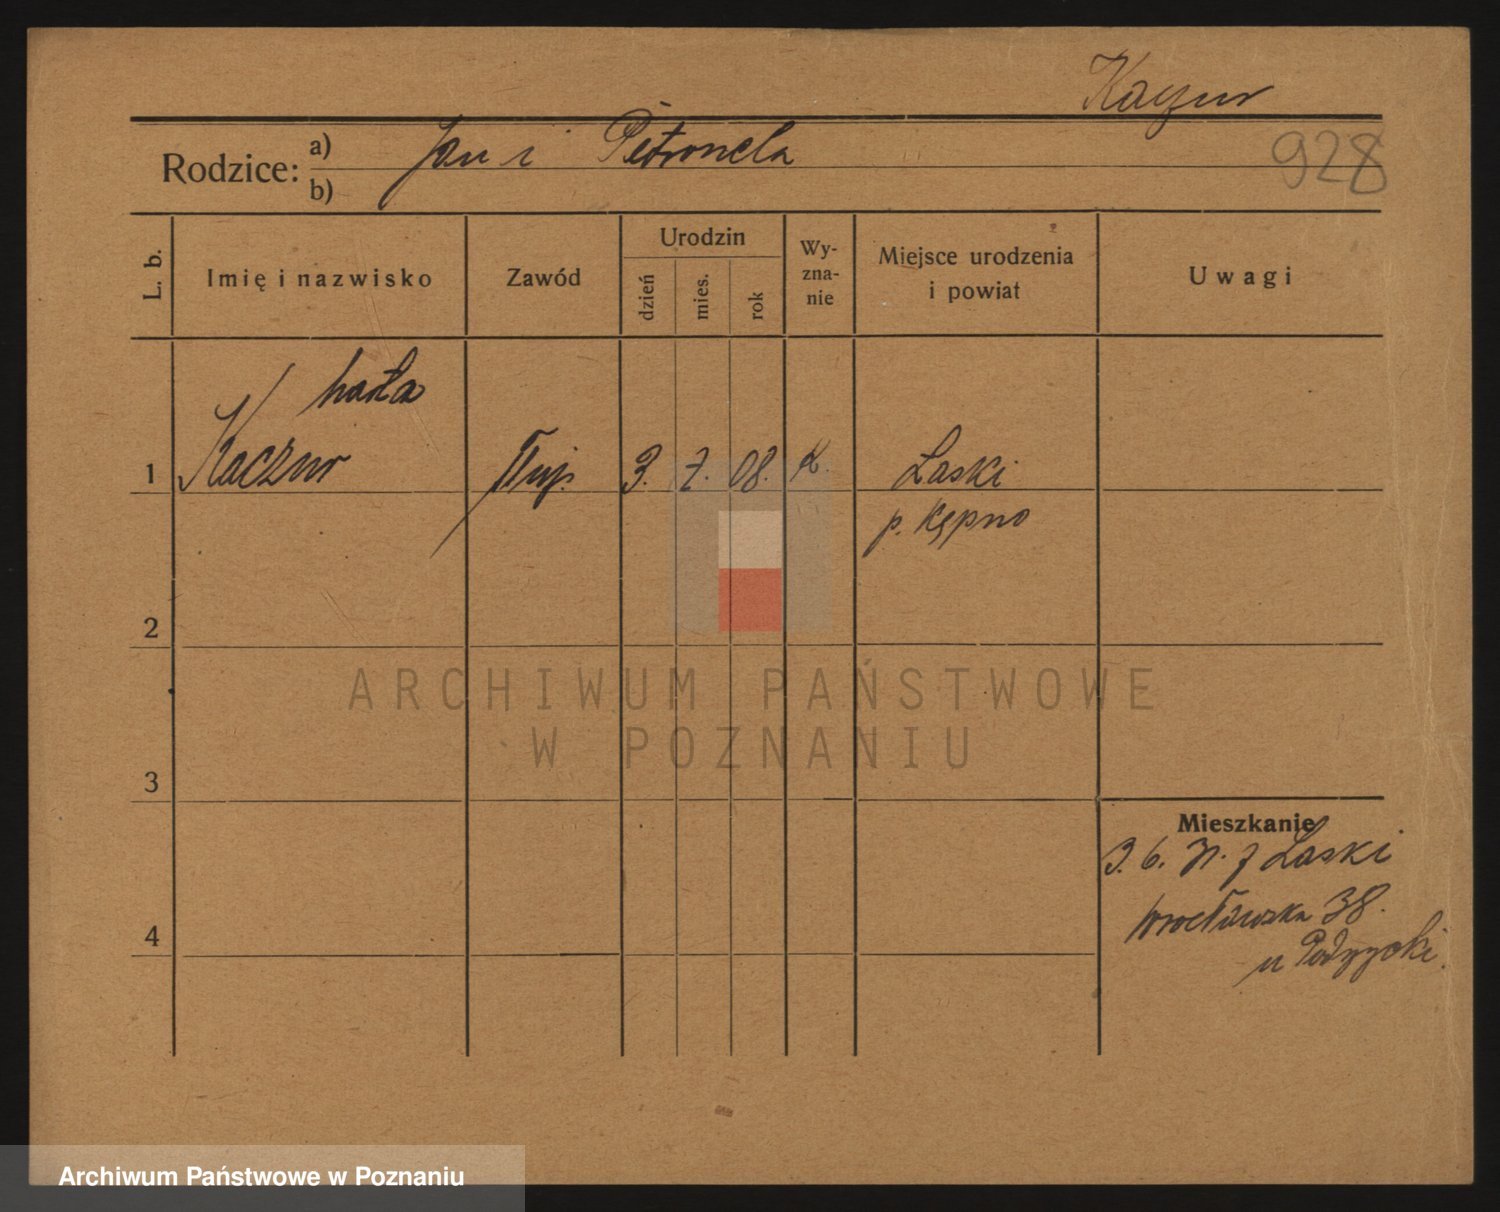 Kaczur
928
Rodzice: a) Jan i Petronela
b)
L. b.
Imię i nazwisko
Zawód
Urodzin
dzień
mies.
rok
Wy-
zna-
nie
Miejsce urodzenia
i powiat
Uwagi
1 Kaczur 3. 7. 08. k. Łaski
p. Kępno
2
3
4
Mieszkanie
Łaski
Wrocławska 38.
u
ARCHIWUM PAŃSTWOWE
W POZNANIU
Archiwum Państwowe w Poznaniu